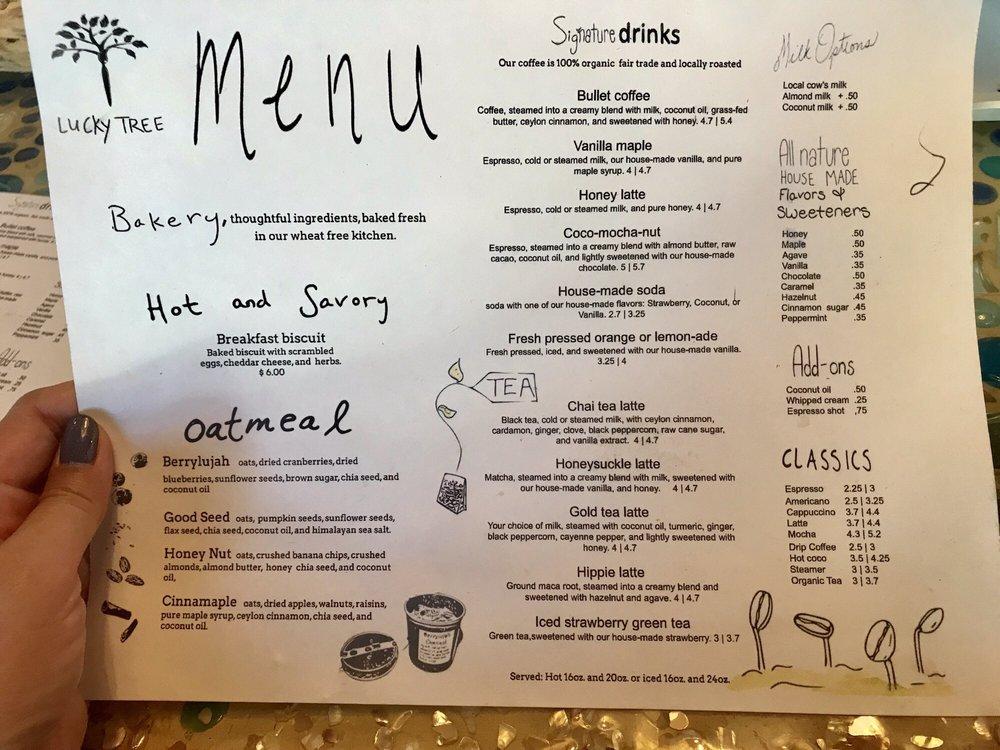 LUCKY TREE
Menu
Bakery, thoughtful ingredients, baked fresh
in our wheat free kitchen.
Hot and Savory
Breakfast biscuit
Baked biscuit with scrambled
eggs, cheddar cheese, and herbs.
$ 6.00
oatmeal
Berrylujah oats, dried cranberries, dried
blueberries, sunflower seeds, brown sugar, chia seed, and
coconut oil
Good Seed oats, pumpkin seeds, sunflower seeds,
flax seed, chia seed, coconut oil, and himalayan sea salt.
Honey Nut oats, crushed banana chips, crushed
almonds, almond butter, honey chia seed, and coconut
oil,
Cinnamaple oats, dried apples, walnuts, raisins,
pure maple syrup, ceylon cinnamon, chia seed, and
coconut oil.
Signature drinks
Our coffee is 100% organic fair trade and locally roasted
Bullet coffee
Coffee, steamed into a creamy blend with milk, coconut oil, grass-fed
butter, ceylon cinnamon, and sweetened with honey. 4.7 | 5.4
Vanilla maple
Espresso, cold or steamed milk, our house-made vanilla, and pure
maple syrup. 4 | 4.7
Honey latte
Espresso, cold or steamed milk, and pure honey. 4 | 4.7
Coco-mocha-nut
Espresso, steamed into a creamy blend with almond butter, raw
cacao, coconut oil, and lightly sweetened with our house-made
chocolate. 5 | 5.7
House-made soda
soda with one of our house-made flavors: Strawberry, Coconut, or
Vanilla. 2.7 | 3.25
Fresh pressed orange or lemon-ade
Fresh pressed, iced, and sweetened with our house-made vanilla.
3.25 | 4
TEA
Chai tea latte
Black tea, cold or steamed milk, with ceylon cinnamon,
cardamon, ginger, clove, black peppercorn, raw cane sugar,
and vanilla extract. 4 | 4.7
Honeysuckle latte
Matcha, steamed into a creamy blend with milk, sweetened with
our house-made vanilla, and honey. 4 | 4.7
Gold tea latte
Your choice of milk, steamed with coconut oil, turmeric, ginger,
black peppercorn, cayenne pepper, and lightly sweetened with
honey. 4 | 4.7
Hippie latte
Ground maca root, steamed into a creamy blend and
sweetened with hazelnut and agave. 4 | 4.7
Iced strawberry green tea
Green tea,sweetened with our house-made strawberry. 3 | 3.7
Served: Hot 16oz. and 20oz. or iced 16oz. and 24oz.
Milk Options
Local cow's milk
Almond milk + .50
Coconut milk + .50
All nature
HOUSE MADE
Flavors &
Sweeteners
Honey .50
Maple .50
Agave .35
Vanilla .35
Chocolate .50
Caramel .35
Hazelnut .45
Cinnamon sugar .45
Peppermint .35
Add-ons
Coconut oil .50
Whipped cream .25
Espresso shot ,75
CLASSICS
Espresso 2.25 | 3
Americano 2.5 | 3.25
Cappuccino 3.7 | 4.4
Latte 3.7 | 4.4
Mocha 4.3 | 5.2
Drip Coffee 2.5 | 3
Hot coco 3.5 | 4.25
Steamer 3 | 3.5
Organic Tea 3 | 3.7